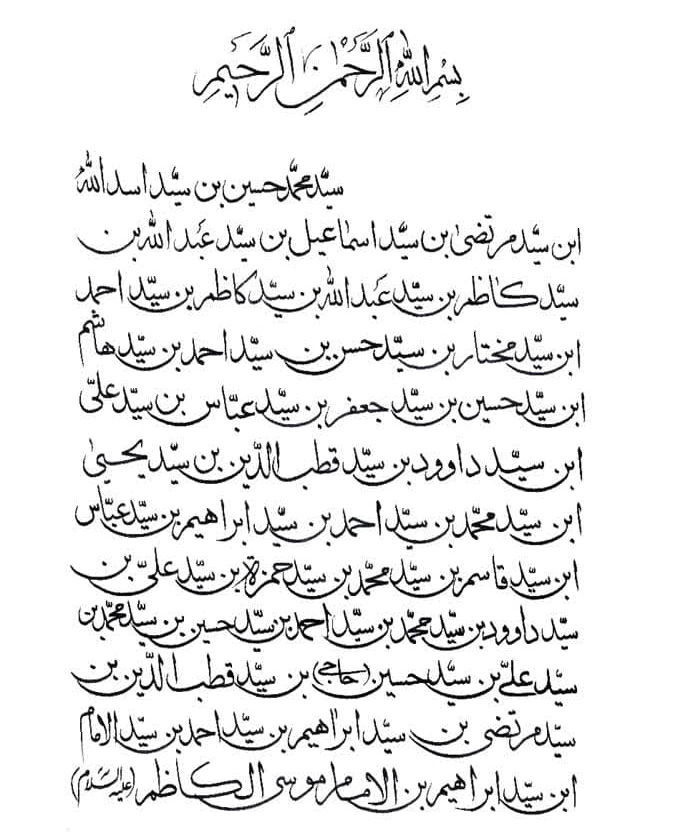 بِسْمِ اللّٰهِ الرَّحْمٰنِ الرَّحيمِ
سيّد محمّد حسين بن سيّد اسد اللّٰه
ابن سيّد مرتضىٰ بن سيّد اسماعيل بن سيّد عَبد اللّٰه بن
سيّد كاظم بن سيّد عَبد اللّٰه بن سيّد كاظم بن سيّد احمد
ابن سيّد مختار بن سيّد حسن بن سيّد احمد بن سيّد هاشم
ابن سيّد حسين بن سيّد جعفر بن سيّد عبّاس بن سيّد علىّ
ابن سيّد داوود بن سيّد قطب الدّين بن سيّد يحيىٰ
ابن سيّد محمّد بن سيّد احمد بن سيّد ابراهيم بن سيّد عبّاس
ابن سيّد قاسم بن سيّد محمّد بن سيّد حمزة بن سيّد علىّ بن
سيّد داوود بن سيّد محمّد بن سيّد احمد بن سيّد حسين بن سيّد محمّد بن
سيّد علىّ بن سيّد حسين (حاجى) بن سيّد قطب الدّين بن
سيّد مرتضى بن سيّد ابراهيم بن سيّد احمد بن سيّد الامام
ابن سيّد ابراهيم بن الامام موسى الكاظم (عليه السّلام)